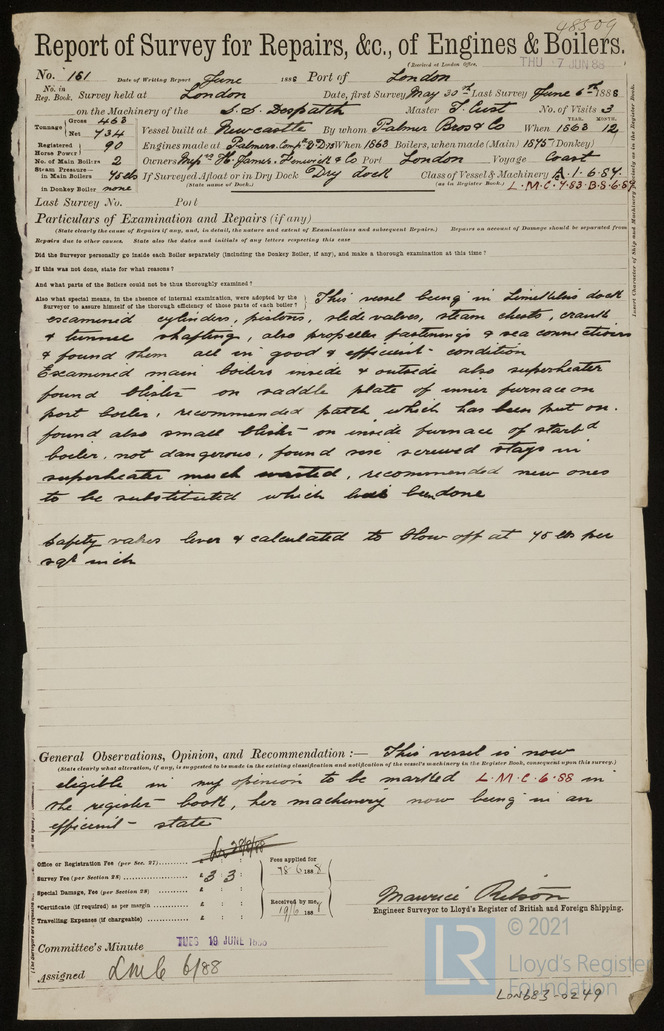 48509
Report of Survey for Repairs, &c., of Engines & Boilers.
(Received at London Office, THU 7 JUN 88
No. 161 Date of Writing Report June 1888 Port of London
No. in Reg. Book. Survey held at London Date, first Survey May 30th Last Survey June 6th 1888
on the Machinery of the S.S. Despatch Master T. Cust No. of Visits 3
Tonnage Gross 463 Net 734 Vessel built at Newcastle By whom Palmer Bros & Co When 1863 YEAR. MONTH. 12
Registered Horse Power 90 Engines made at Palmers When 1863 Boilers, when made (Main) 1875 (Donkey)
No. of Main Boilers 2 Owners H. James Fenwick & Co Port London Voyage Coast
Steam Pressure in Main Boilers 45 lbs If Surveyed Afloat or in Dry Dock Dry dock Class of Vessel & Machinery A.1.6.87.
in Donkey Boiler none (State name of Dock.) (as in Register Book.) L.M.C.7.83.B.S.6.87
Last Survey No. Port
Particulars of Examination and Repairs (if any)
(State clearly the cause of Repairs if any, and, in detail, the nature and extent of Examinations and subsequent Repairs.) Repairs on account of Damage should be separated from
Repairs due to other causes. State also the dates and initials of any letters respecting this case
Did the Surveyor personally go inside each Boiler separately (including the Donkey Boiler, if any), and make a thorough examination at this time?
If this was not done, state for what reasons?
And what parts of the Boilers could not be thus thoroughly examined?
Also what special means, in the absence of internal examination, were adopted by the Surveyor to assure himself of the thorough efficiency of those parts of each boiler? This vessel being in Limekilns dock
examined cylinders, pistons, slide valves, steam chests, crank
& tunnel shafting, also propeller fastenings & sea connections
& found them all in good & efficient condition
Examined main boilers inside & outside also superheater
found blister on saddle plate of inner furnace on
port boiler, recommended patch which has been put on.
found also small blister on inside furnace of starbd
boiler, not dangerous, found six screwed stays in
superheater much wasted, recommended new ones
to be substituted which been done
Safety valves lever & calculated to blow off at 45 lbs per
sqr inch
General Observations, Opinion, and Recommendation :— This vessel is now
(State clearly what alteration, if any, is suggested to be made in the existing classification and notification of the vessel's machinery in the Register Book, consequent upon this survey.)
eligible in my opinion to be marked L.M.C.6.88 in
the register book, her machinery now being in an
efficient state
Office or Registration Fee (per Sec. 27)
Survey Fee (per Section 28) £ 3 : 3 : Fees applied for 18/6 1888
Special Damage, Fee (per Section 28) £ : :
*Certificate (if required) as per margin £ : : Received by me,
Travelling Expenses (if chargeable) £ : : 19/6 188
Maurice Ritson
Engineer Surveyor to Lloyd's Register of British and Foreign Shipping.
Committee's Minute TUES 19 JUNE 1888
Assigned LMC 6/88
© 2021
LR Lloyd's Register
Foundation
LON683-0249